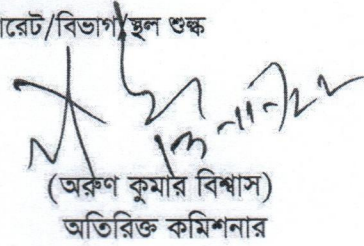 ারেট/বিভাগ/স্থল শুল্ক
(অরুণ কুমার বিশ্বাস)
অতিরিক্ত কমিশনার